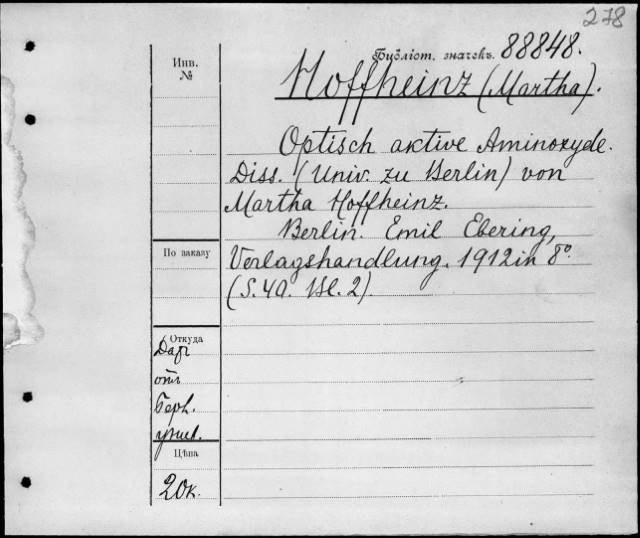 278
Библіот. значекъ 88848.
Инв.
№
Hoffheinz (Martha).
Optisch aktive Aminoxyde.
Diss. (Univ. zu Berlin) von
Martha Hoffheinz.
Berlin. Emil Ebering,
Verlagshandlung. 1912 in 8°.
(S. 40. Bl. 2).
По заказу
Откуда
Даръ
отъ
Берл.
унив.
Цѣна
20к.